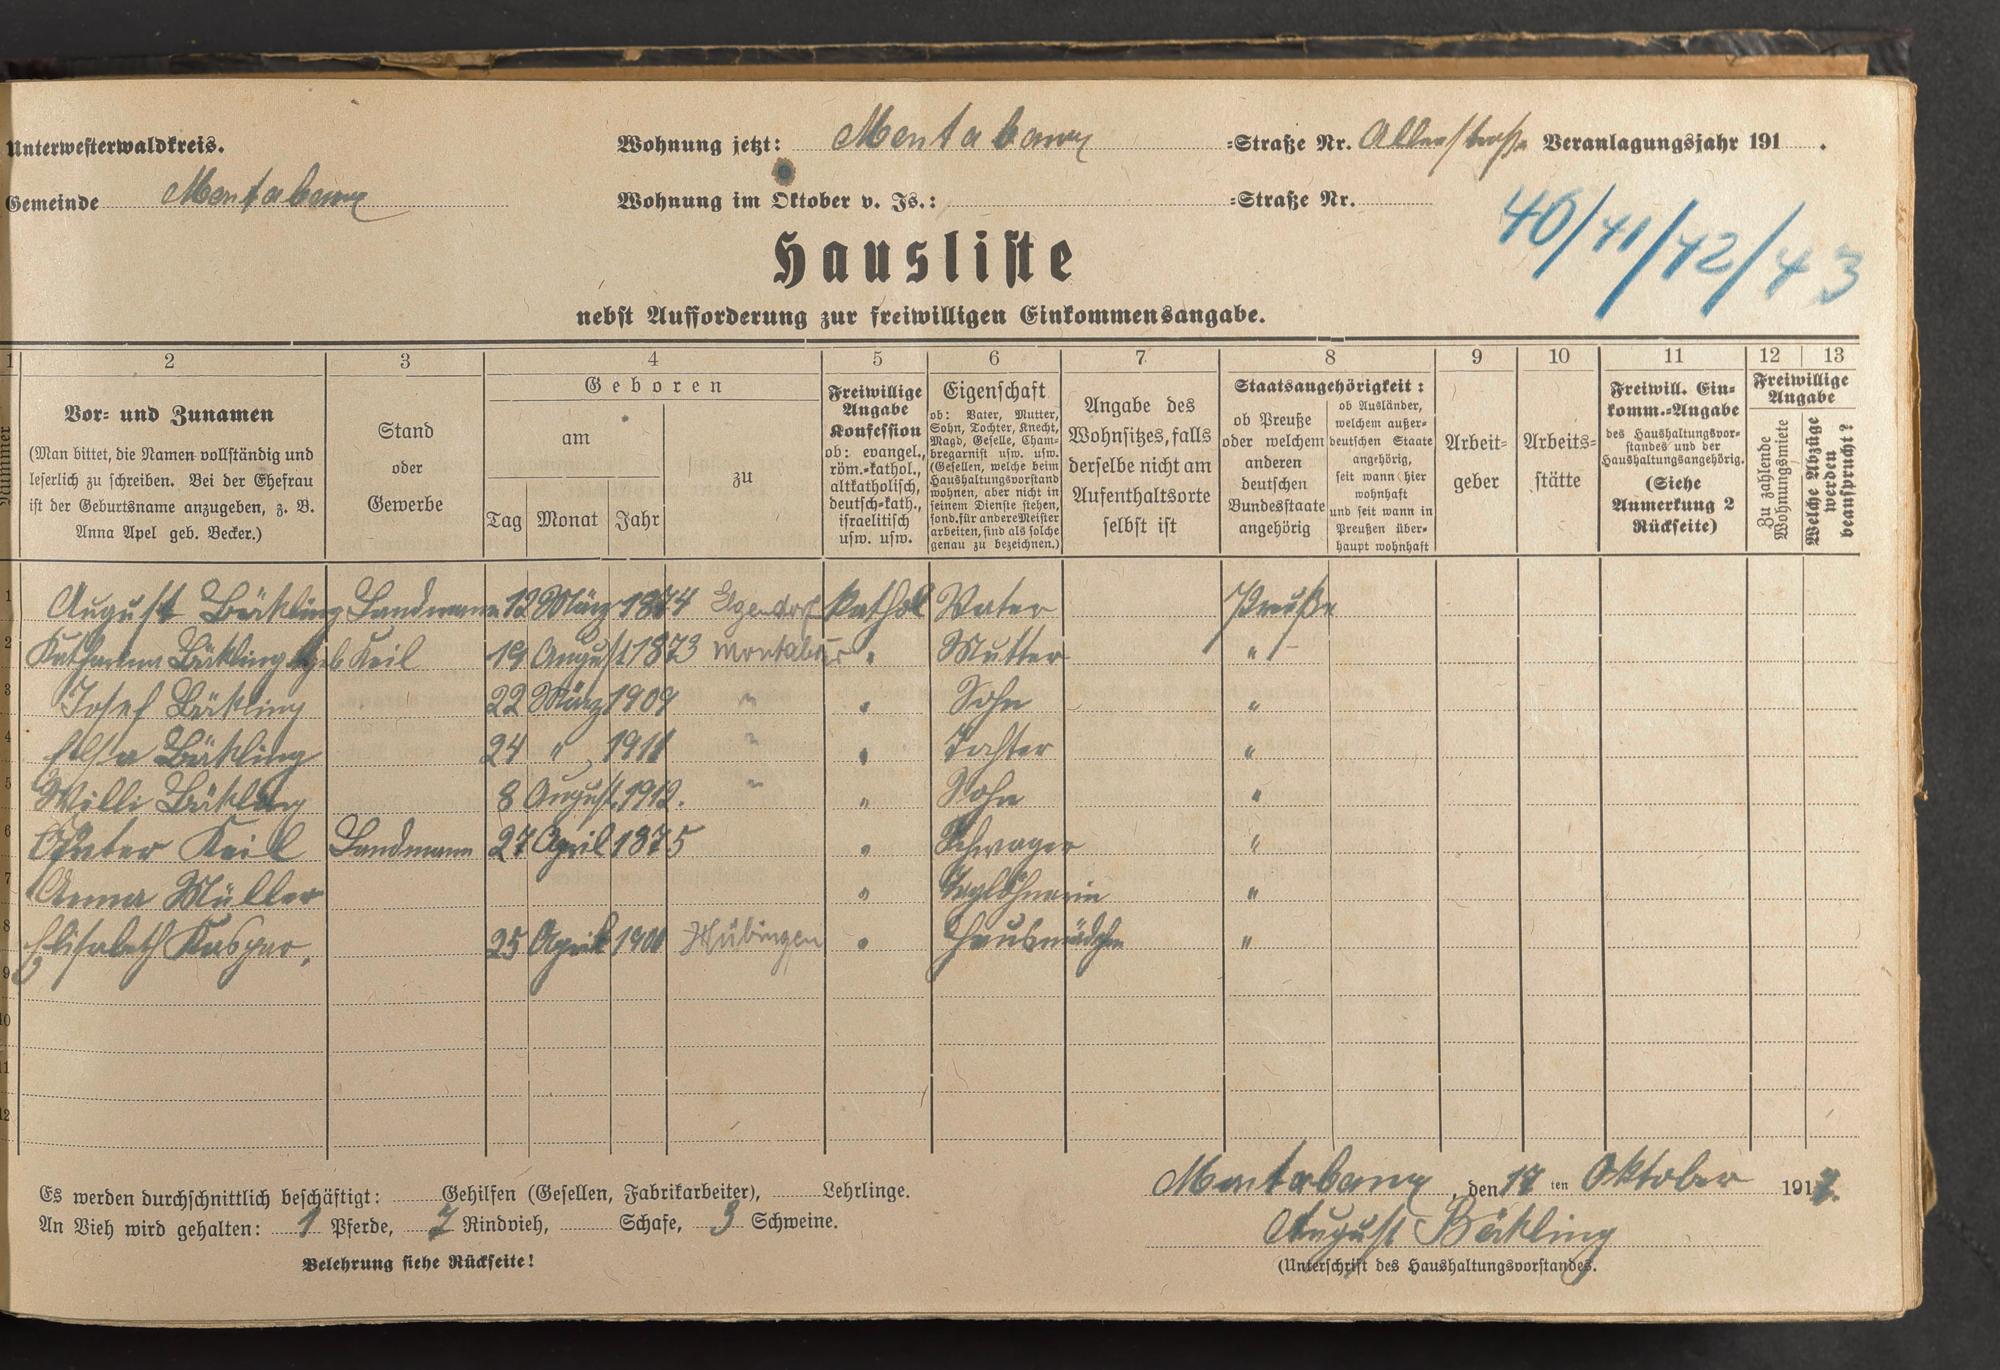 Unterwesterwaldkreis. Wohnung jetzt: Montabaur =Straße Nr. Allerstraße Veranlagungsjahr 191 .
Gemeinde Montabaur Wohnung im Oktober v. Js.: =Straße Nr.
40/41/42/43
Hausliste
nebst Aufforderung zur freiwilligen Einkommensangabe.
1 2 3 4 5 6 7 8 9 10 11 12 13
Nummer
Vor= und Zunamen
(Man bittet, die Namen vollständig und
leserlich zu schreiben. Bei der Ehefrau
ist der Geburtsname anzugeben, z. B.
Anna Apel geb. Becker.)
Stand
oder
Gewerbe
Geboren
am
Tag Monat Jahr
zu
Freiwillige
Angabe
Konfession
ob: evangel.,
röm.=kathol.,
altkatholisch,
deutsch=kath.,
israelitisch
usw. usw.
Eigenschaft
ob: Vater, Mutter,
Sohn, Tochter, Knecht,
Magd, Geselle, Cham=
bregarnist usw. usw.
(Gesellen, welche beim
Haushaltungsvorstand
wohnen, aber nicht in
seinem Dienste stehen,
sond. für andere Meister
arbeiten, sind als solche
genau zu bezeichnen.)
Angabe des
Wohnsitzes, falls
derselbe nicht am
Aufenthaltsorte
selbst ist
Staatsangehörigkeit:
ob Preuße
oder welchem
anderen
deutschen
Bundesstaate
angehörig
ob Ausländer,
welchem außer=
deutschen Staate
angehörig,
seit wann hier
wohnhaft
und seit wann in
Preußen über=
haupt wohnhaft
Arbeit=
geber
Arbeits=
stätte
Freiwill. Ein=
komm.=Angabe
des Haushaltungsvor=
standes und der
Haushaltungsangehörig.
(Siehe
Anmerkung 2
Rückseite)
Freiwillige
Angabe
Zu zahlende
Wohnungsmiete
Welche Abzüge
werden
beansprucht?
1 August Bäckling Landmann 12 März 1874 Elgendorf kathol Vater Preuße
2 Katharina Bäckling geb Keil 19 August 1873 Montabaur " Mutter "
3 Josef Bäckling 22 März 1909 " " Sohn "
4 Elsa Bäckling 24 " 1911 " " Tochter "
5 Willi Bäckling 8 August 1912. " " Sohn "
6 Peter Keil Landmann 27 April 1875 " Schwager "
7 Anna Müller " Taglöhnerin "
8 Elisabeth Kasper, 25 April 1900 Hübingen " Hausmädchen "
9
10
11
12
Es werden durchschnittlich beschäftigt: Gehilfen (Gesellen, Fabrikarbeiter), Lehrlinge.
An Vieh wird gehalten: 1 Pferde, 7 Rindvieh, Schafe, 3 Schweine.
Belehrung siehe Rückseite!
Montabaur, den 17 ten Oktober 1917.
August Bäckling
(Unterschrift des Haushaltungsvorstandes.